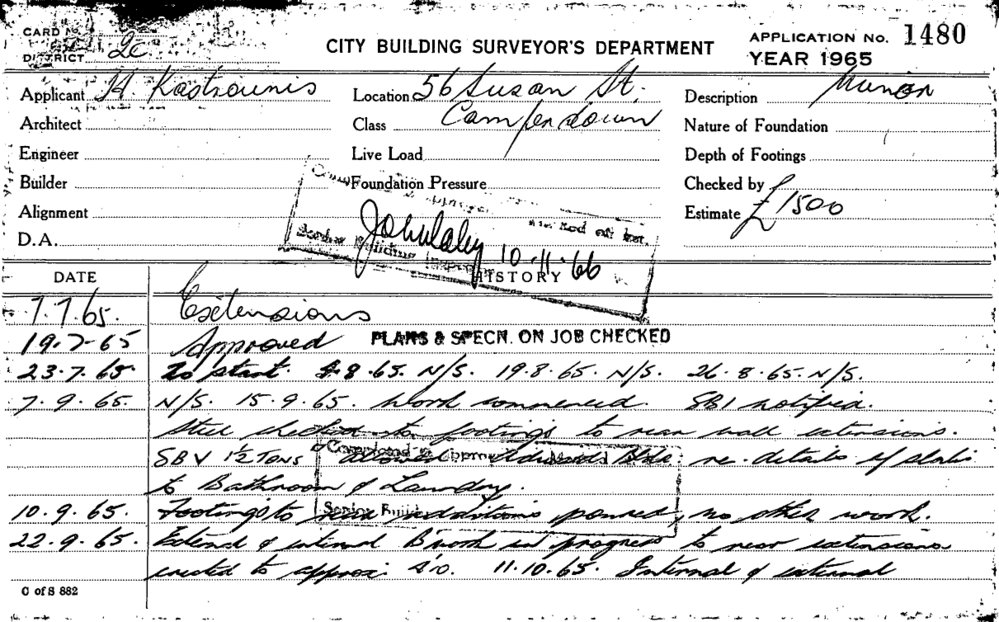 CARD No.
DISTRICT 2c
CITY BUILDING SURVEYOR'S DEPARTMENT
APPLICATION No. 1480
YEAR 1965
Applicant H. Kastrounis
Location 56 Susan St.
Camperdown
Description
Architect
Class
Nature of Foundation
Engineer
Live Load
Depth of Footings
Builder
Foundation Pressure
Checked by
Alignment
Estimate £1500
D.A.
10.11.66
DATE
HISTORY
7.7.65. Extensions
19.7.65 Approved PLANS & SPECN. ON JOB CHECKED
23.7.65 To start. 8.65. N/S. 19.8.65. N/S. 26.8.65. N/S.
7.9.65. N/S. 15.9.65. Work commenced. SBI notified.
Steel checked to footings to rear wall extensions.
SBV 1½ Tons re. details of slabs
to Bathroom & Laundry.
10.9.65. Footings to rear additions poured, no other work.
22.9.65. Extend & internal B'work in progress to rear extensions
erected to approx. 4'0. 11.10.65. Internal & external
C of S 882